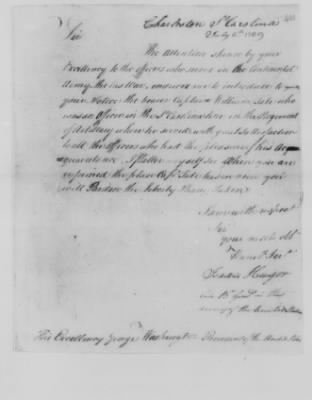 Charleston So Carolina
July 6th 1789
Sir
The attention shewn by your
Excellency to the officers who served in the Continental
Army the last War, induces me to introduce to
your Notice the bearer Captain William Tate who
was an Officer in the So Carolina Regiment
of Artillery where he served with great Satisfaction
to all the officers who had the pleasure of his Ac
quaintance. I flatter myself Sir when you are
informed the place Capt Tate has in view you
will Pardon the liberty I have taken
I am with respect
Sir
your most obt
Humb Servt
Isaac Huger
late B Genl in the
army of the United States
His Excellency George Washington President of the United States